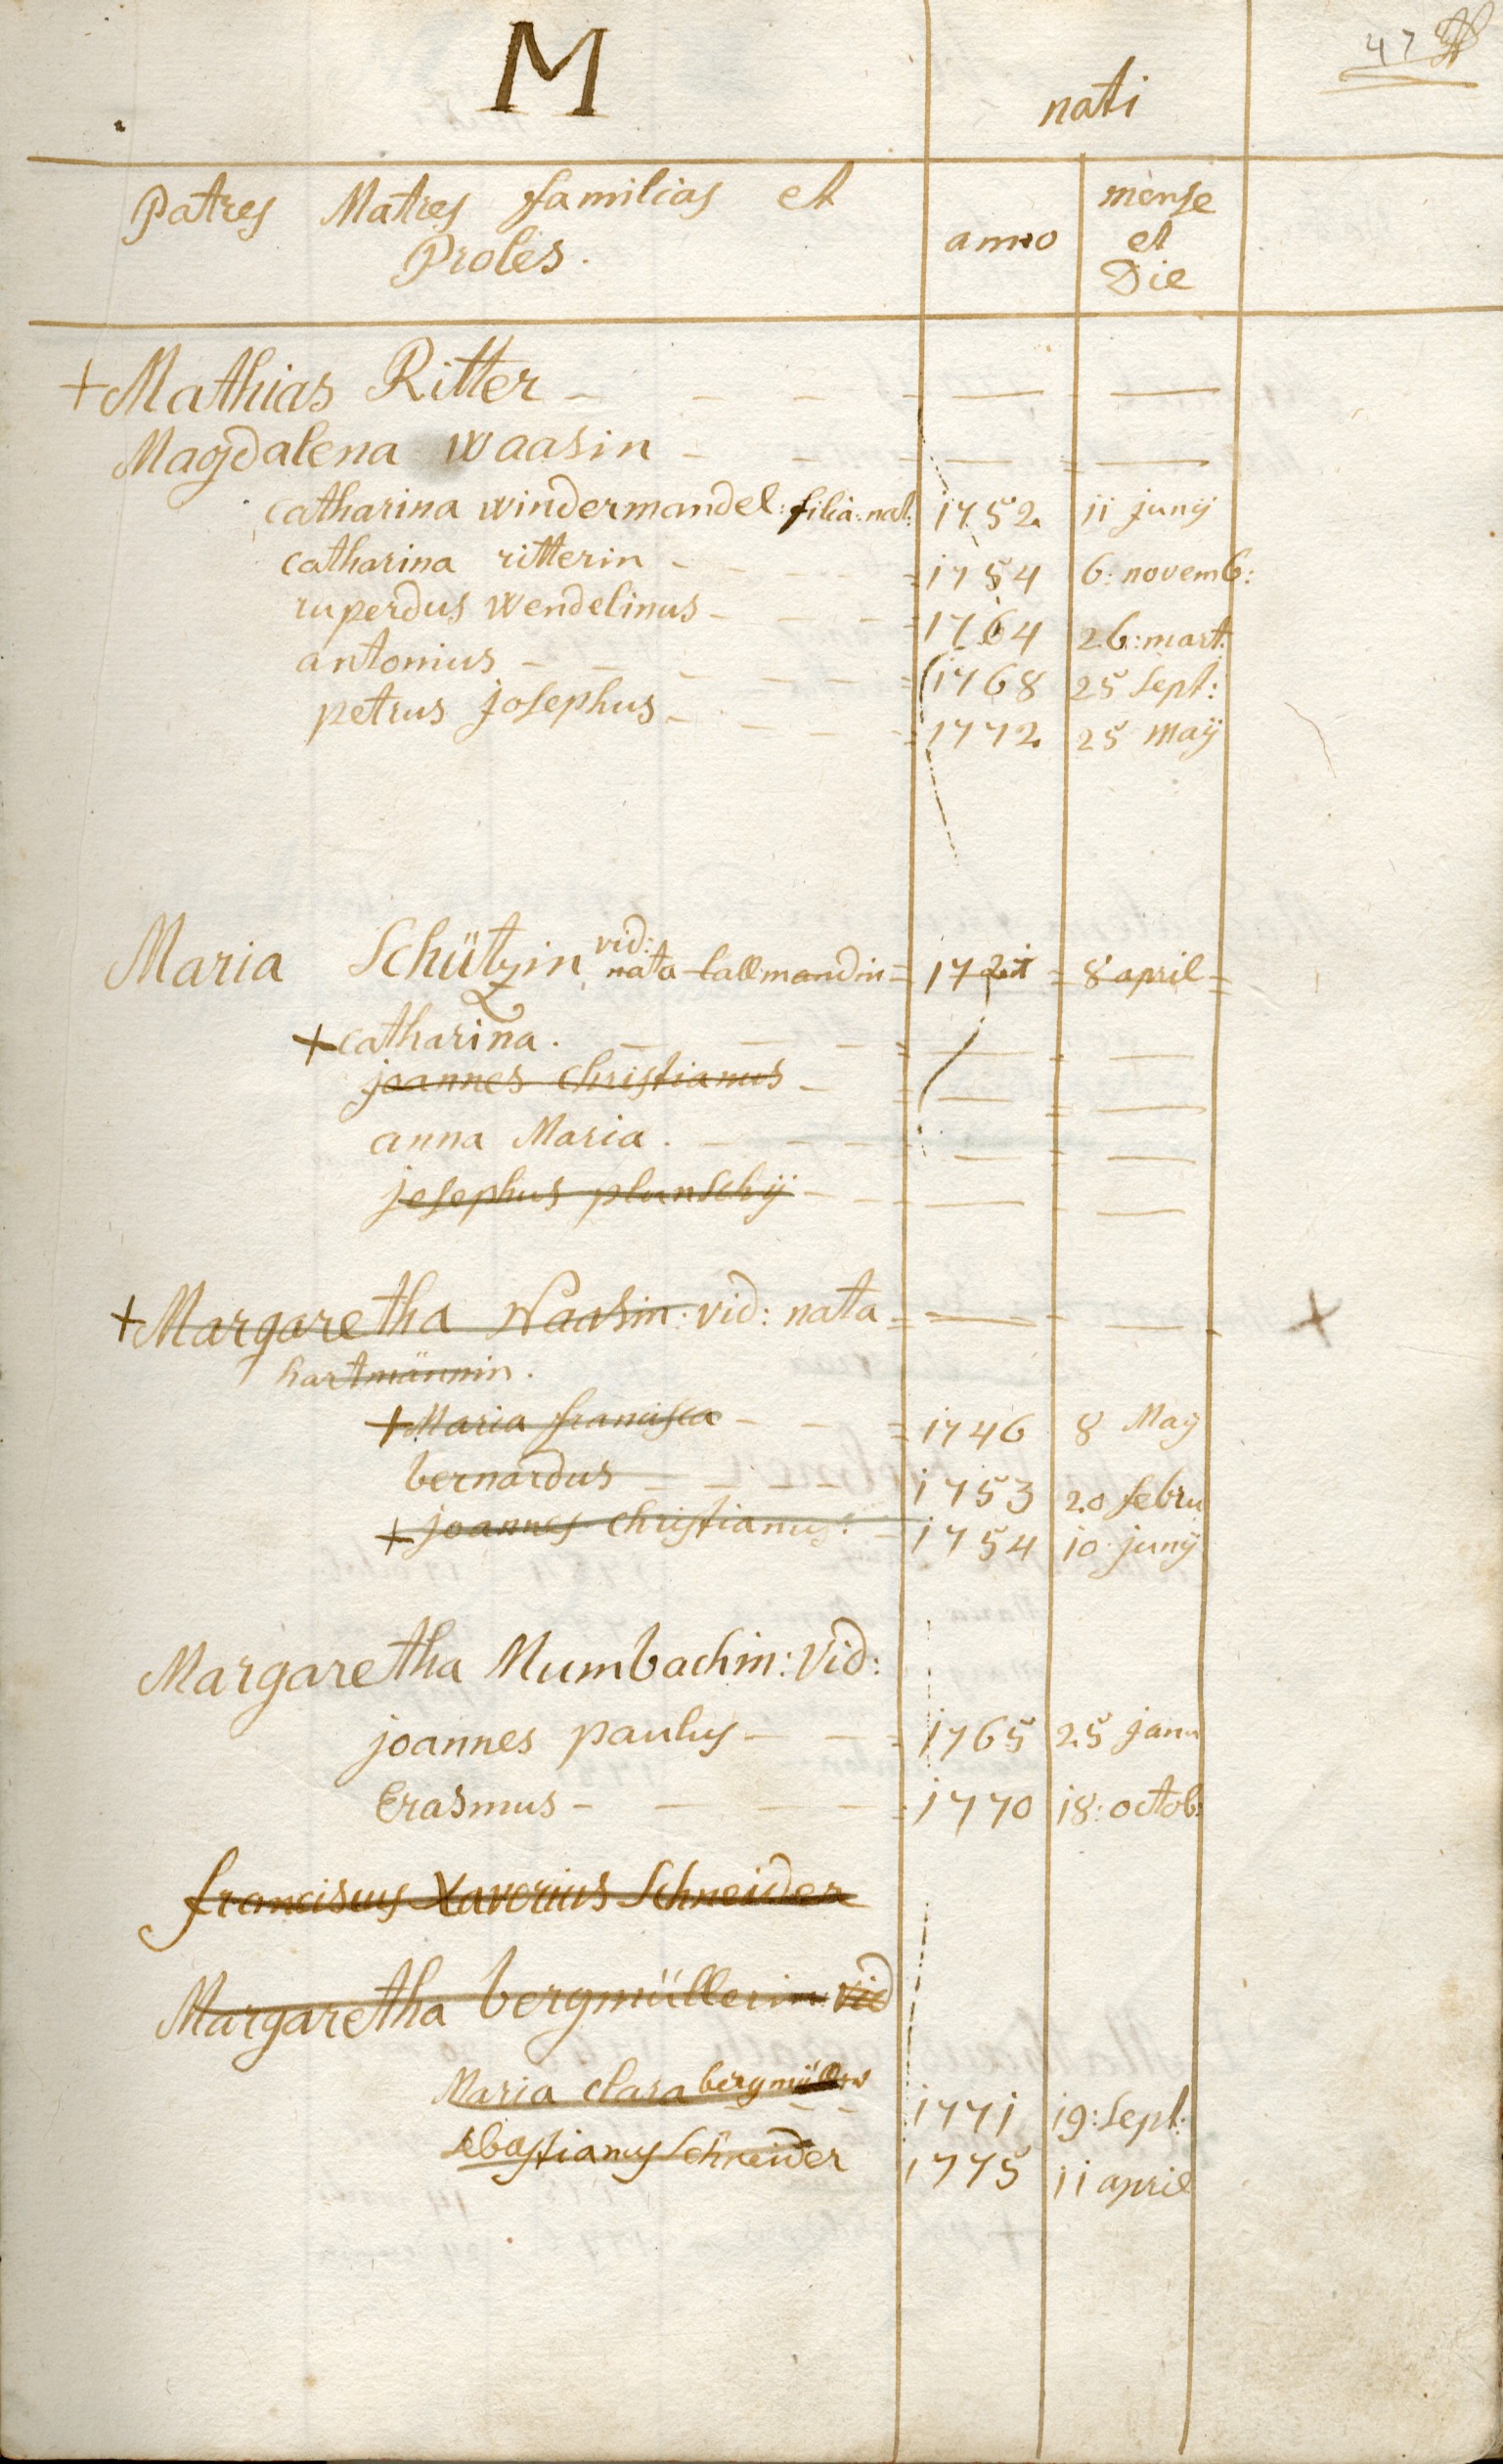 M
nati
47
Patres Matres familias et
Proles.
anno
mense
et
Die
+ Mathias Ritter - - - - — —
Magdalena Waasin - - - — = —
catharina windermandel: filia: nat: 1752. 11 junÿ
catharina ritterin - - - - = 1754 6: novemb:
ruperdus Wendelinus - - - - = 1764 26: mart:
antonius - - - - - - = 1768 25 Sept:
petrus josephus - - - - = 1772. 25 Maÿ
vid:
Maria Schützin nata tallmandin = 1721 = 8 april =
+ catharina. - - - = — - —
joannes christianus - = — = —
anna Maria. - - - - — = —
josephus planschÿ - - - — - —
+ Margaretha Waasin: vid: nata = — - — - +
hartmännin.
+ Maria francisca - - = 1746 8 Maÿ
bernardus - - - - 1753 20 febru
+ joannes christianus: - 1754 10 junÿ
Margaretha Mumbachin: Vid:
joannes paulus - - = 1765 25 janu
Erasmus - - - - = 1770 18: octob:
franciscus Xaverius Schneider
Margaretha bergmüllerin vid
Maria clara bergmüllerin - - - 1771 19: Sept:
sebastianus Schneider 1775 11 april